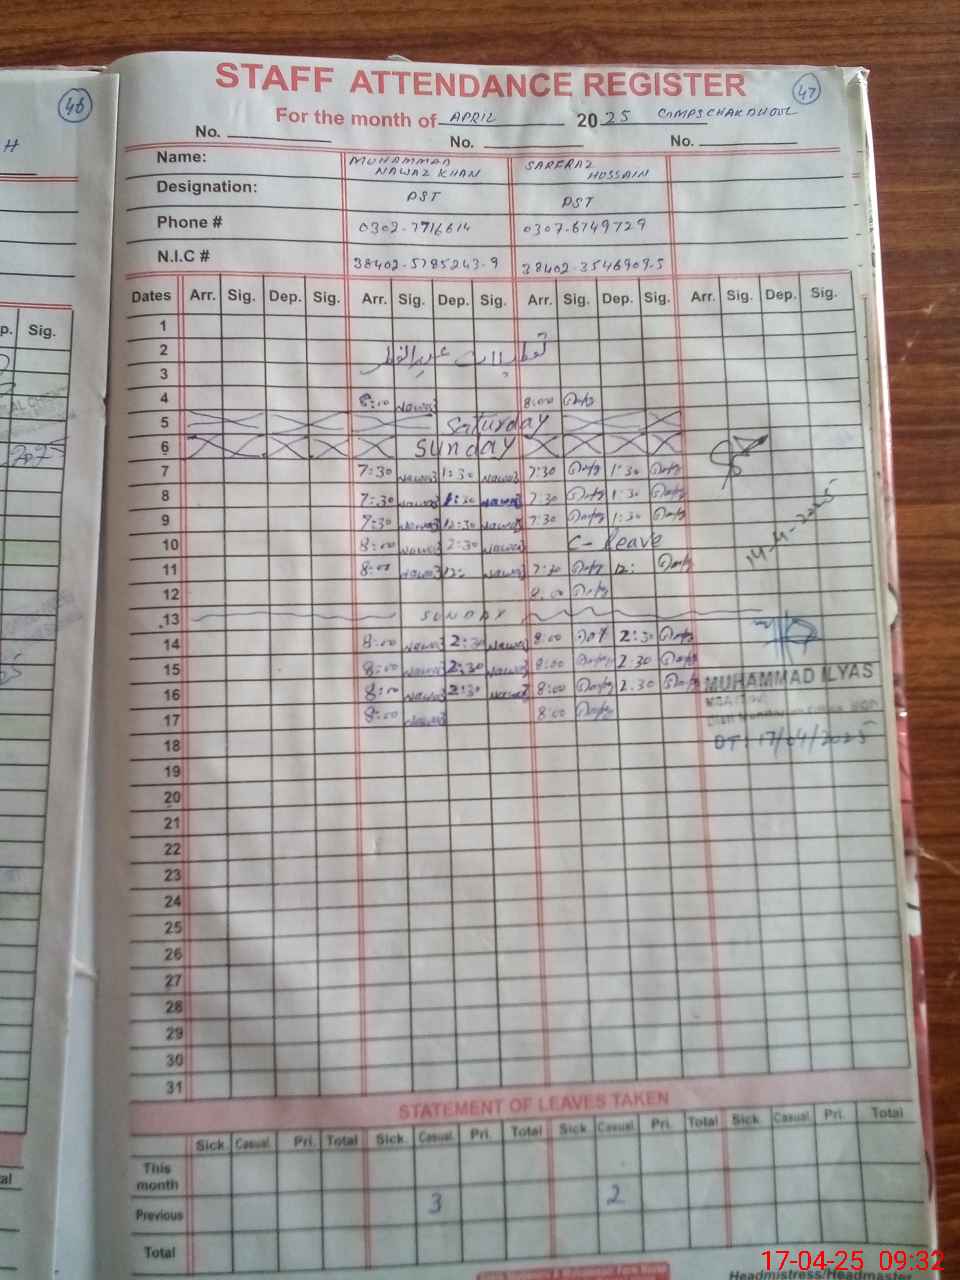 46
STAFF ATTENDANCE REGISTER 47
For the month of APRIL 2025
No. No. No.
Name: MUHAMMAD NAWAZ KHAN SARFRAZ HUSSAIN
Designation: PST PST
Phone # 0302-7716614 0307-6749729
N.I.C # 38402-5785243-9 38402-3546909-5
Dates Arr. Sig. Dep. Sig. Arr. Sig. Dep. Sig. Arr. Sig. Dep. Sig. Arr. Sig. Dep. Sig.
p. Sig.
1
2 تعطیلات عید الفطر
3
4 8:00 Nawaz 8:00
5 Saturday
6 SUNDAY
7 7:30 Nawaz 1:30 Nawaz 7:30 1:30
8 7:30 Nawaz 1:30 Nawaz 7:30 1:30
9 7:30 Nawaz 12:30 Nawaz 7:30 1:30
10 8:00 Nawaz 2:30 Nawaz C-Leave
11 8:00 Nawaz 12: Nawaz 7:30 12:
12 8:00
14-4-2025
13 SUNDAY
14 8:00 Nawaz 2:30 Nawaz 8:00 2:30
15 8:00 Nawaz 2:30 Nawaz 8:00 2:30
16 8:00 Nawaz 2:30 Nawaz 8:00 2:30
MUHAMMAD ILYAS
17 8:00 Nawaz 8:00
DT: 17/04/2025
18
19
20
21
22
23
24
25
26
27
28
29
30
31
STATEMENT OF LEAVES TAKEN
Sick Casual Pri. Total Sick Casual Pri. Total Sick Casual Pri. Total Sick Casual Pri. Total
This month
Previous 3 2
Total
17-04-25 09:32
Headmistress/Headmaster